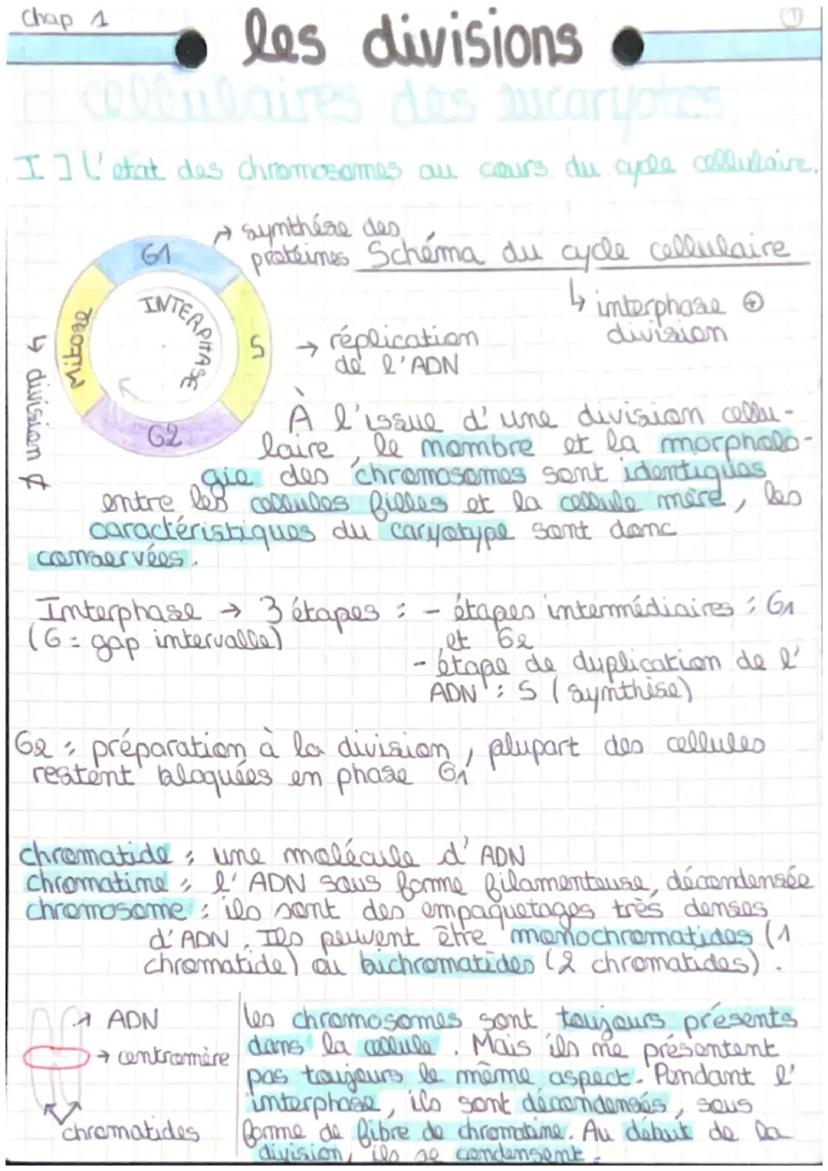 Chap 1
①
les divisions
cellulaires des eucaryotes
I] L'etat des chromosomes au cours du cycle cellulaire.
→ synthése des
protéines
Schéma du cycle cellulaire
↳ interphase ⊕
division
G1
S
G2
Mitose
INTERPHASE
→ réplication
de l'ADN
↳ division
À l'issue d'une division cellu-
laire, le nombre et la morpholo-
gie des chromosomes sont identiques
entre les cellules filles et la cellule mère, les
caractéristiques du caryotype sont donc
conservées.
Interphase → 3 étapes : - étapes intermédiaires : G1
(G = gap intervalle) et G2
- étape de duplication de l'
ADN : S (synthèse)
G2 : préparation à la division, plupart des cellules
restent bloquées en phase G1
chromatide : une molécule d'ADN
chromatine : l'ADN sous forme filamenteuse, décondensée
chromosome : ils sont des empaquetages très denses
d'ADN. Ils peuvent être monochromatides (1
chromatide) ou bichromatides (2 chromatides).
→ ADN
→ centromère
chromatides
les chromosomes sont toujours présents
dans la cellule. Mais ils ne présentent
pas toujours le même aspect. Pendant l'
interphase, ils sont décondensés, sous
forme de fibre de chromatine. Au début de la
division, ils se condensent.